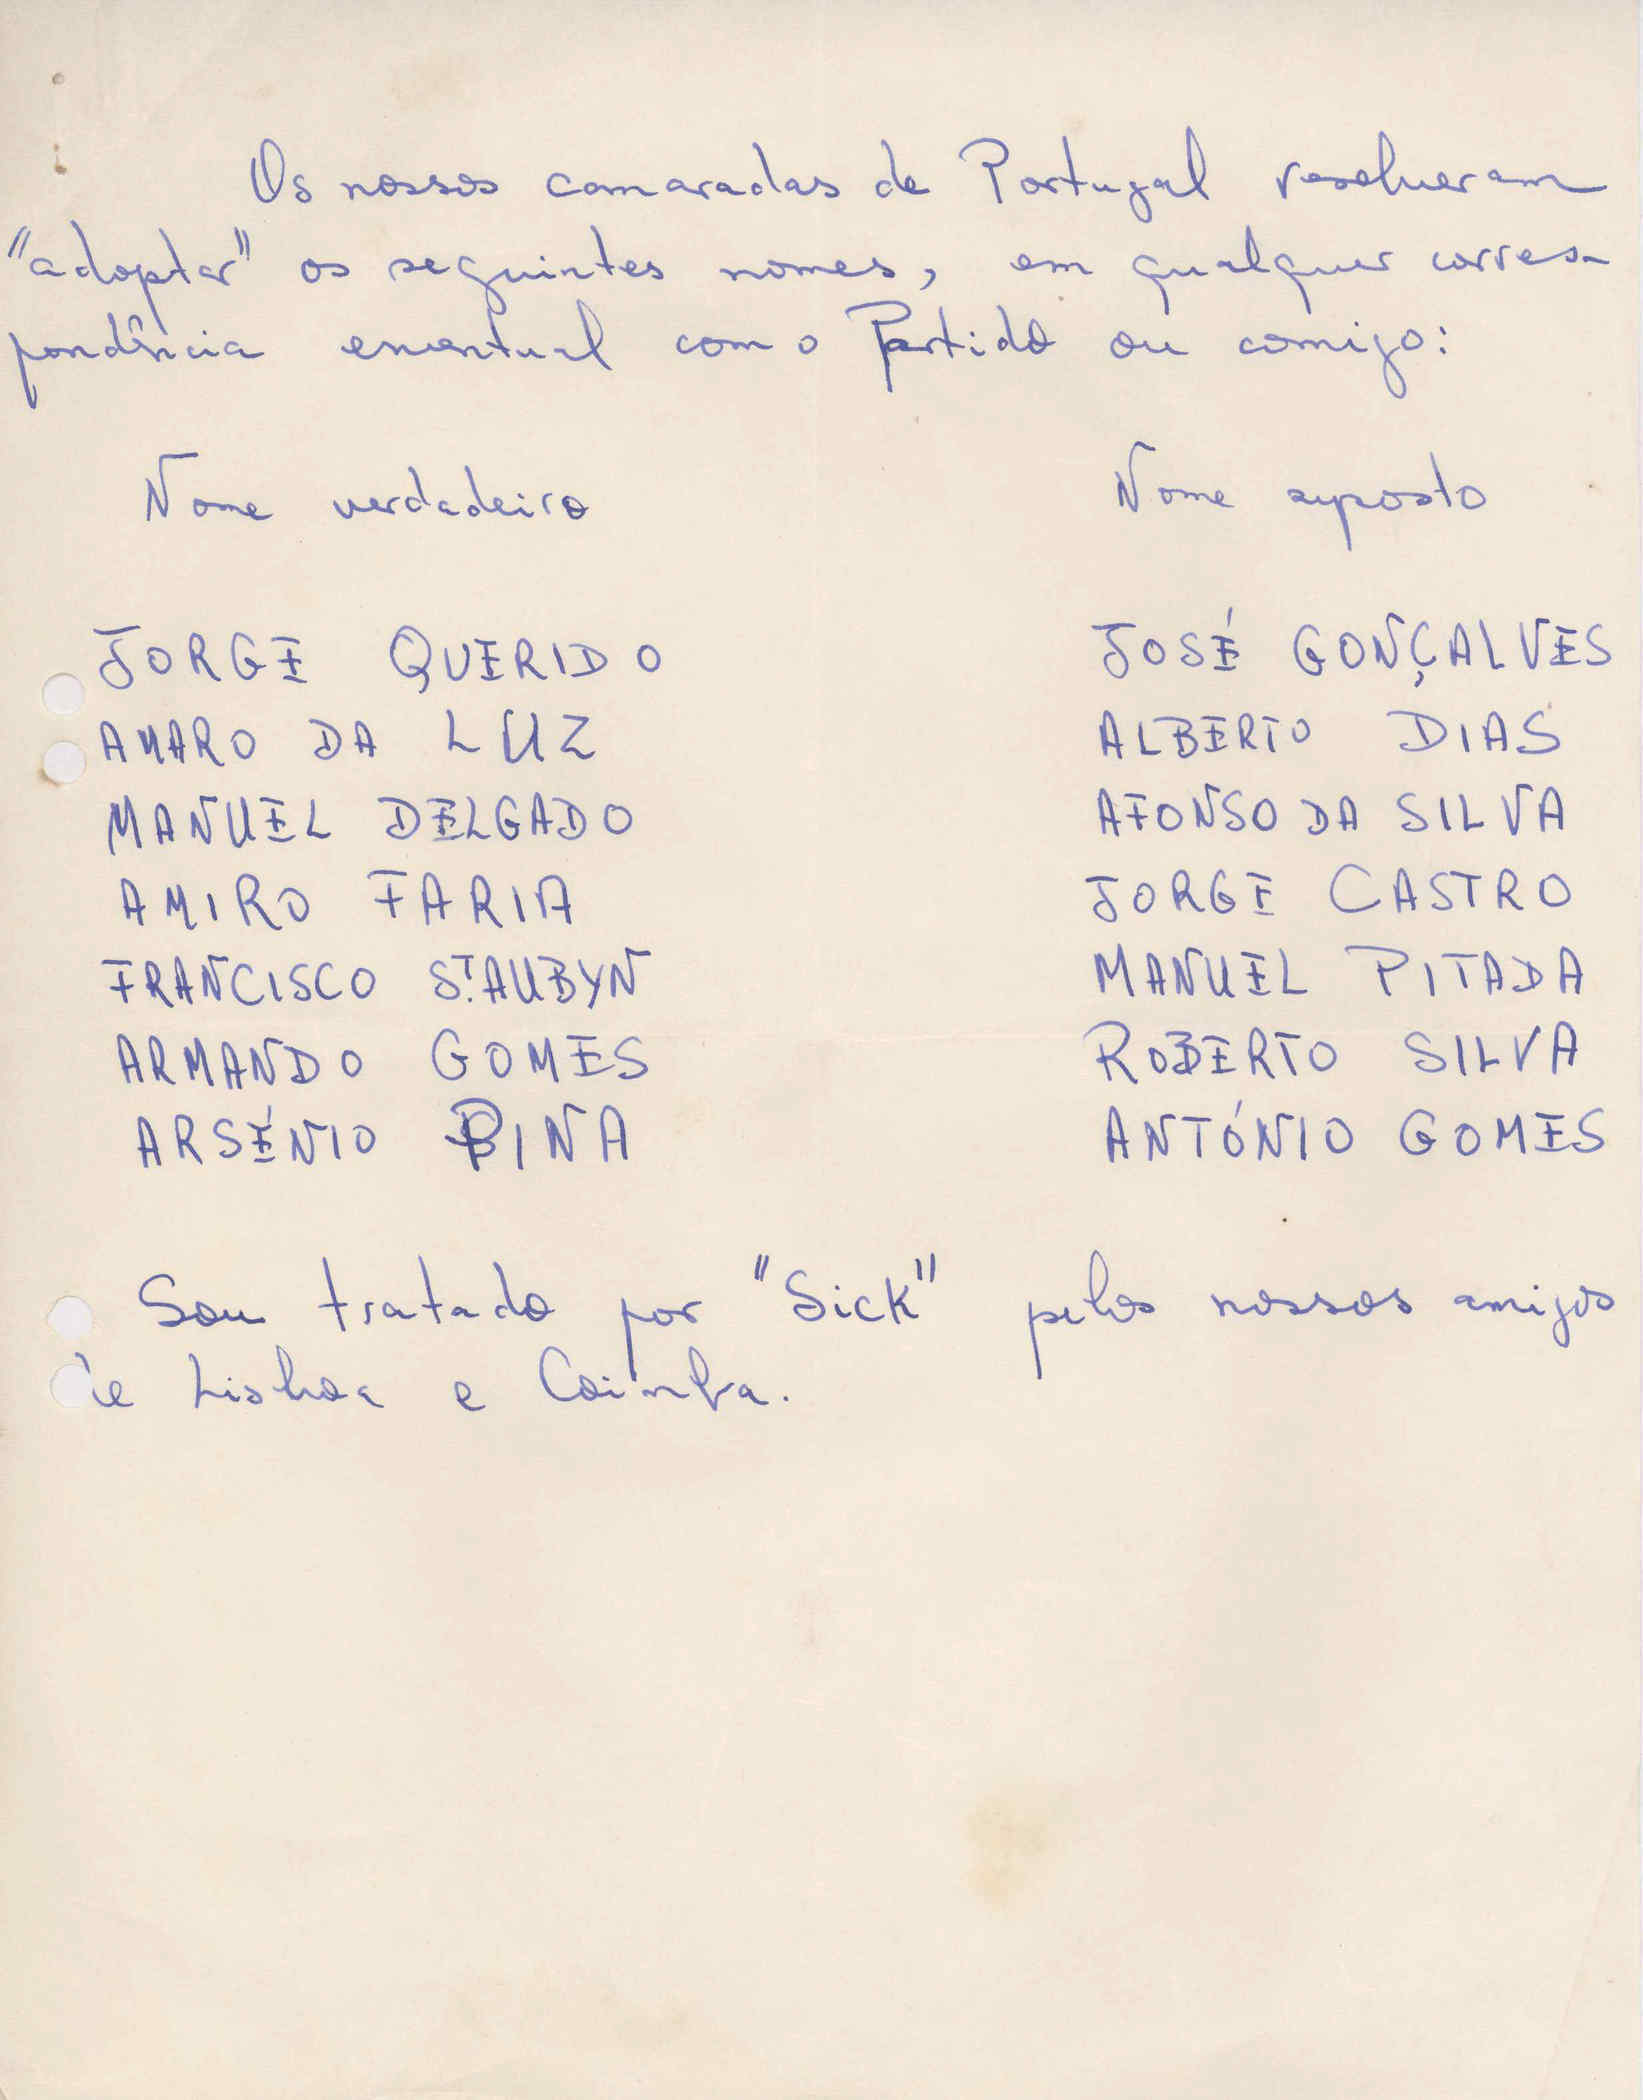 Os nossos camaradas de Portugal resolveram
"adoptar" os seguintes nomes, em qualquer corres-
pondência eventual com o Partido ou comigo:
Nome verdadeiro Nome suposto
JORGE QUERIDO JOSÉ GONÇALVES
AMARO DA LUZ ALBERTO DIAS
MANUEL DELGADO AFONSO DA SILVA
AMIRO FARIA JORGE CASTRO
FRANCISCO ST. AUBYN MANUEL PITADA
ARMANDO GOMES ROBERTO SILVA
ARSÉNIO PINA ANTÓNIO GOMES
Sou tratado por "Sick" pelos nossos amigos
de Lisboa e Coimbra.